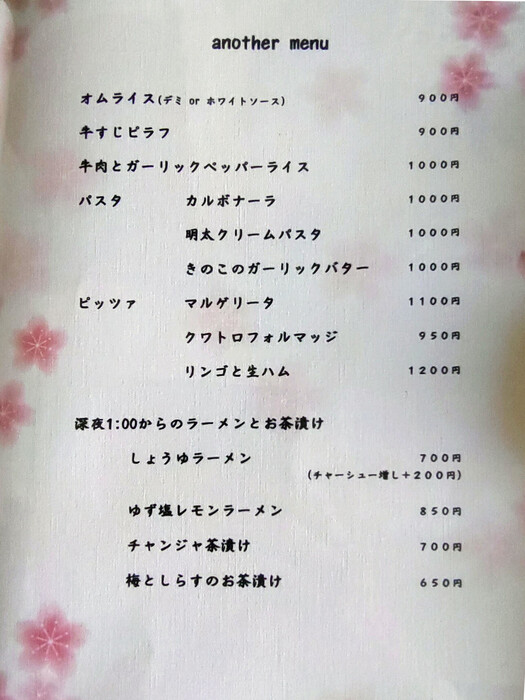 another menu
オムライス(デミ or ホワイトソース) 900円
牛すじピラフ 900円
牛肉とガーリックペッパーライス 1000円
パスタ カルボナーラ 1000円
明太クリームパスタ 1000円
きのこのガーリックバター 1000円
ピッツァ マルゲリータ 1100円
クワトロフォルマッジ 950円
リンゴと生ハム 1200円
深夜1:00からのラーメンとお茶漬け
しょうゆラーメン 700円
(チャーシュー増し+200円)
ゆず塩レモンラーメン 850円
チャンジャ茶漬け 700円
梅としらすのお茶漬け 650円